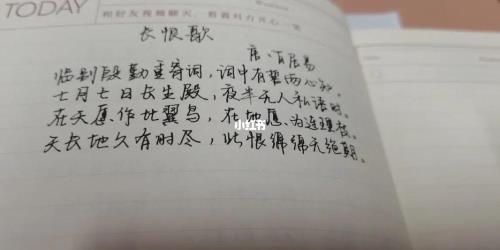 TODAY
和好友视频聊天,看着对方开心一笑
长恨歌
唐·白居易
临别殷勤重寄词,词中有誓两心知。
七月七日长生殿,夜半无人私语时。
在天愿作比翼鸟,在地愿为连理枝。
天长地久有时尽,此恨绵绵无绝期。
小红书